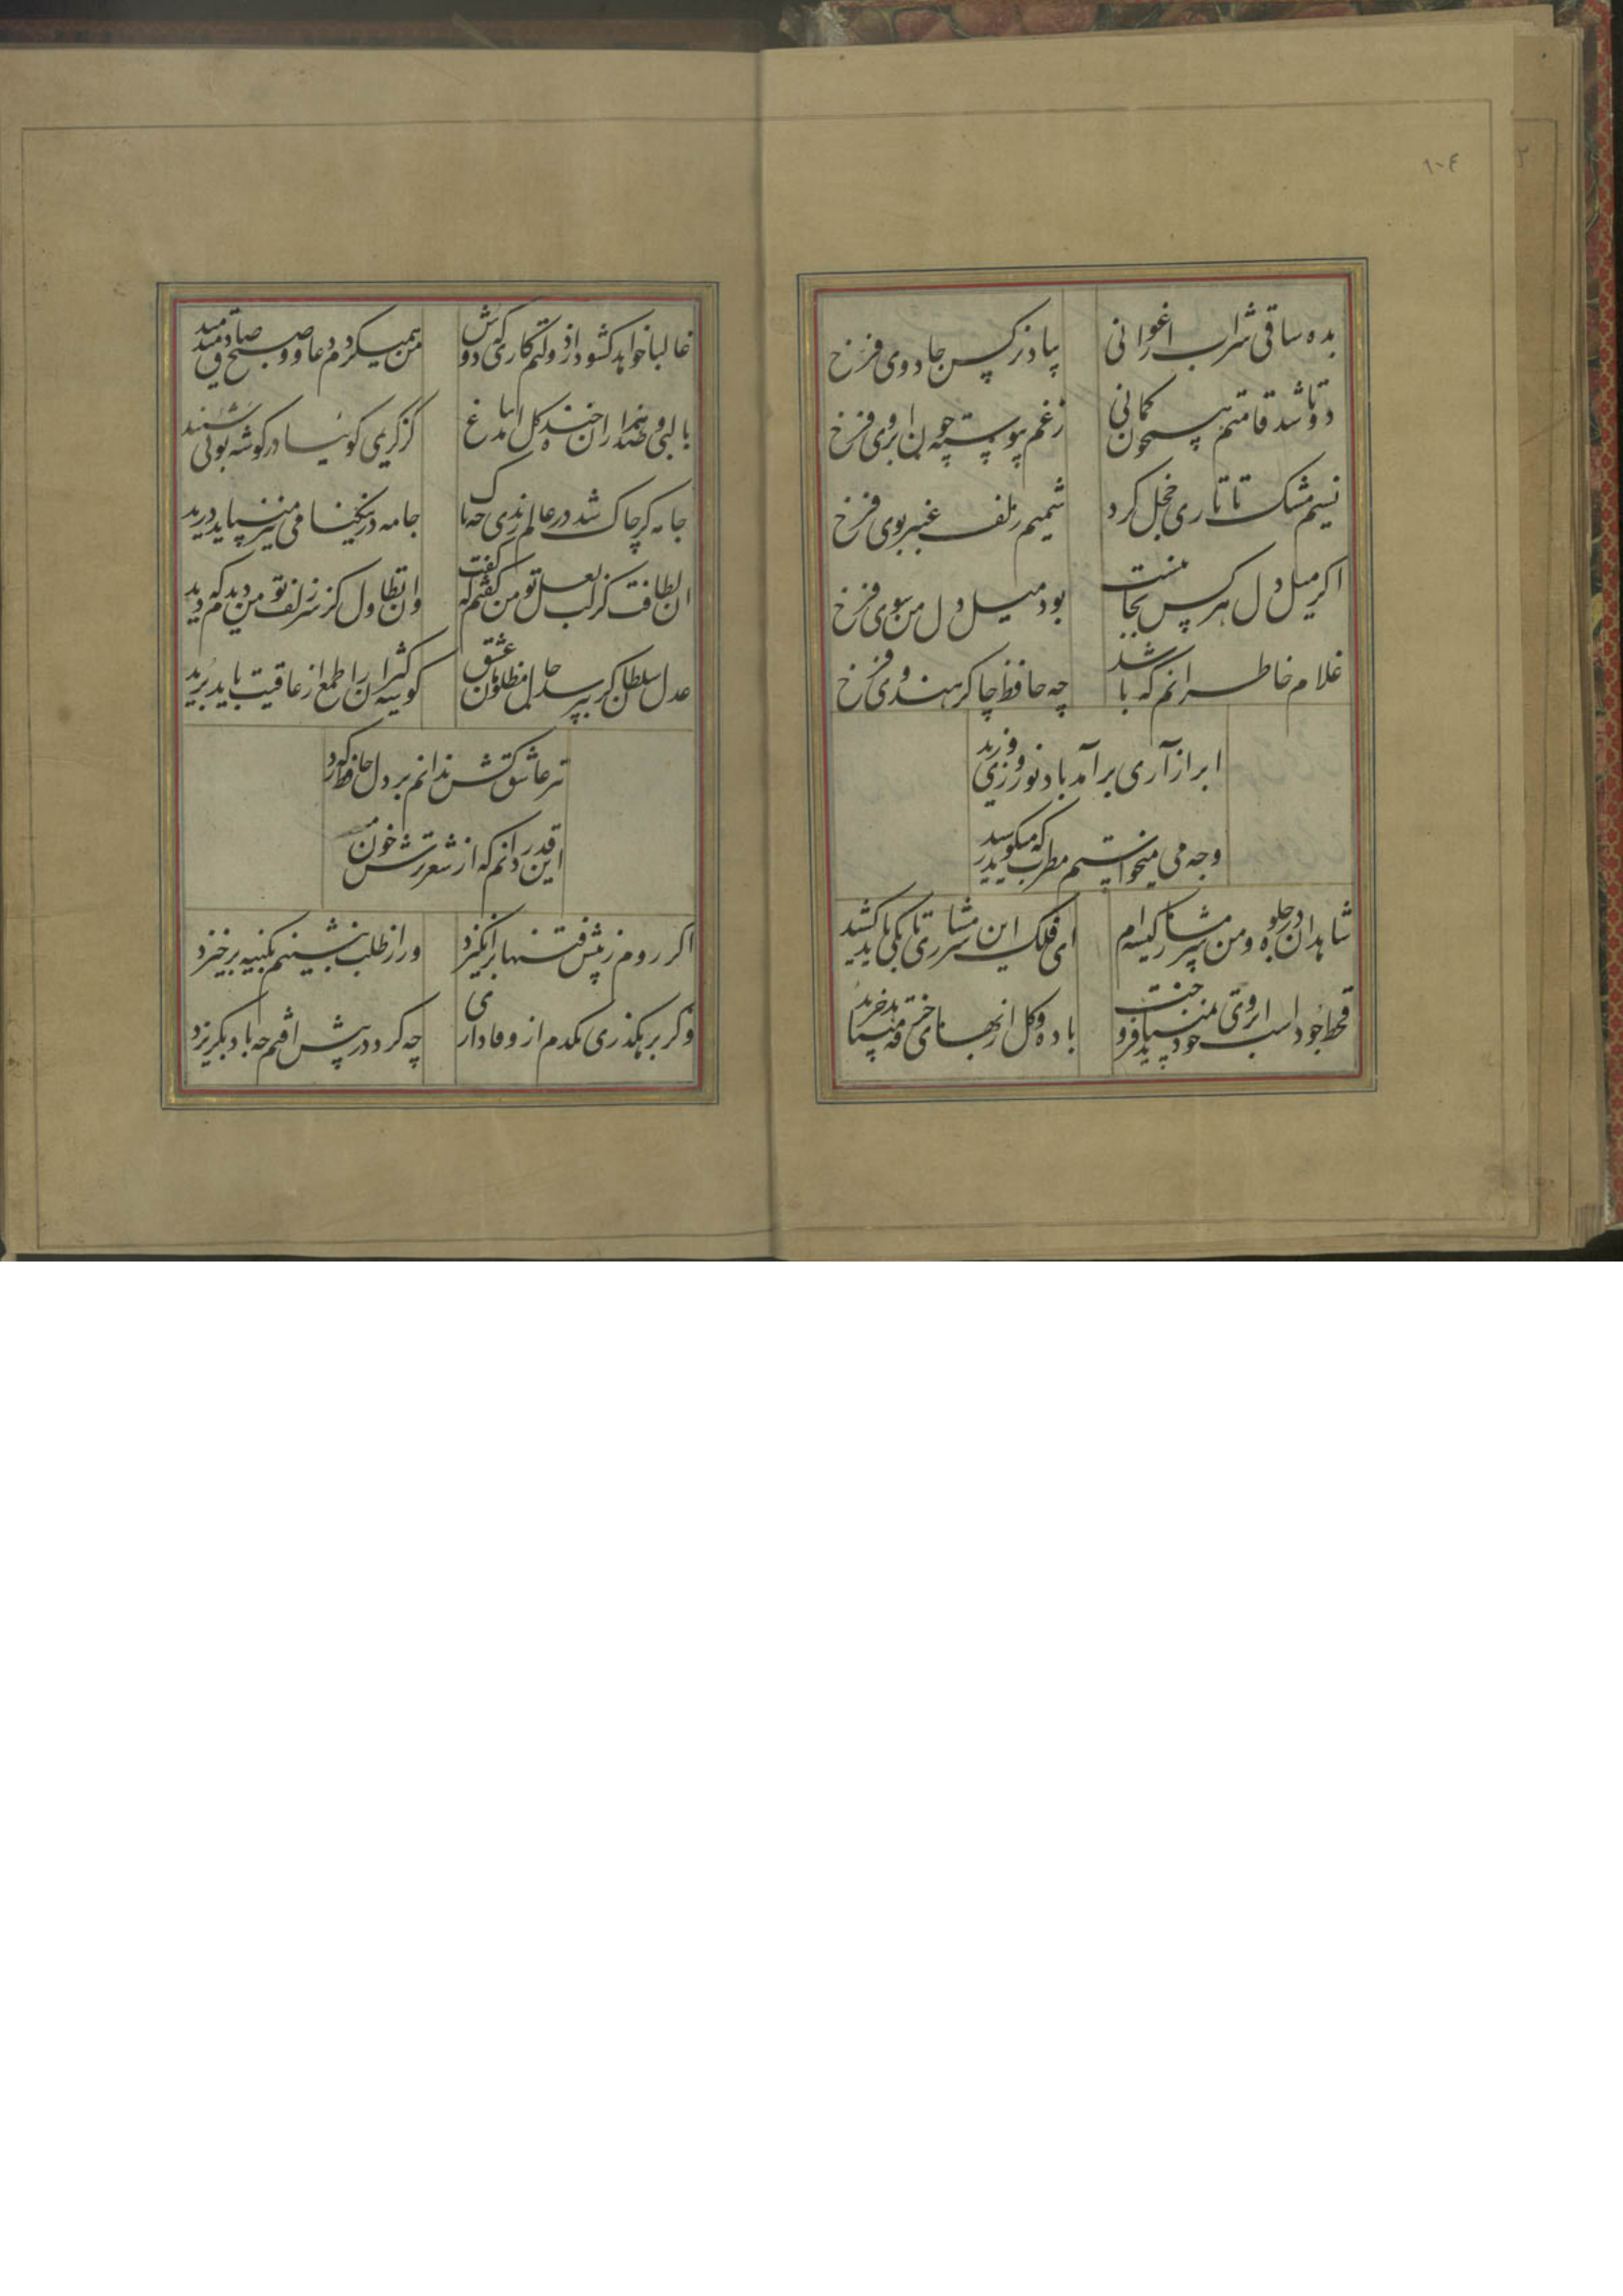 ١٠٤
بده ساقی شراب ارغوانی
بیاد نرکس جادوی فرخ
دوتا شد قامتم همچون کمانی
زغم پیوسته چون ابروی فرخ
نسیم مشک تاتاری خجل کرد
شمیم زلف عنبربوی فرخ
اکر میل دل هر کس بجائیست
بود میل دل من سوی فرخ
غلام خاطر انم که باشد
چه حافظ چاکر هندوی فرخ
ابر ازاری برآمد باد نوروزی وزید
وجه می میخواستیم مطرب که میکوید رسید
شاهدان در جلوه و من شرمسار کیسه ام
ای فلک این شرمساری تا بکی باید کشید
قحط جود است ابروی خود نمیباید فروخت
باده و کل از بهای خرقه میباید خرید
غالبا خواهد کشود از دولتم کاری که دوش
من همیکردم دعا و صبح صادق میدمید
با لبی و صد هزاران خنده کل امد بباغ
از کریمی کوئیا در کوشه بوئی شنید
جامه کر چاک شد در عالم رندی چه باک
جامه در نیکنامی نیز میباید درید
ان لطافت کز لب لعل تو من کفتم که کفت
وان تطاول کز سر زلف تو من دیدم که دید
عدل سلطان کر نپرسد حال مظلومان عشق
کوشه کیران را طمع از عاقیت باید برید
تیر عاشق کش ندانم بر دل حافظ که زد
این قدر دانم که از شعر ترش خون
اکر روم ز پیش فتنها برانکیزد
ور از طلب بنشینم بکینه برخیزد
وکر برهکذری یکدم از وفاداری
چه کرد در پیش افتم چه باد بکریزد